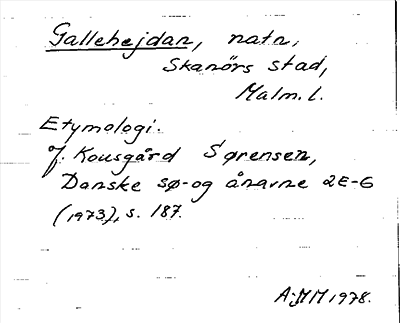 Gallehejdan, natn,
Skanörs stad,
Malm. l.
Etymologi.
Jf. Kousgård Sørensen,
Danske sø- og ånavne 2 E-G
(1973), s. 187.
A:MM 1978.